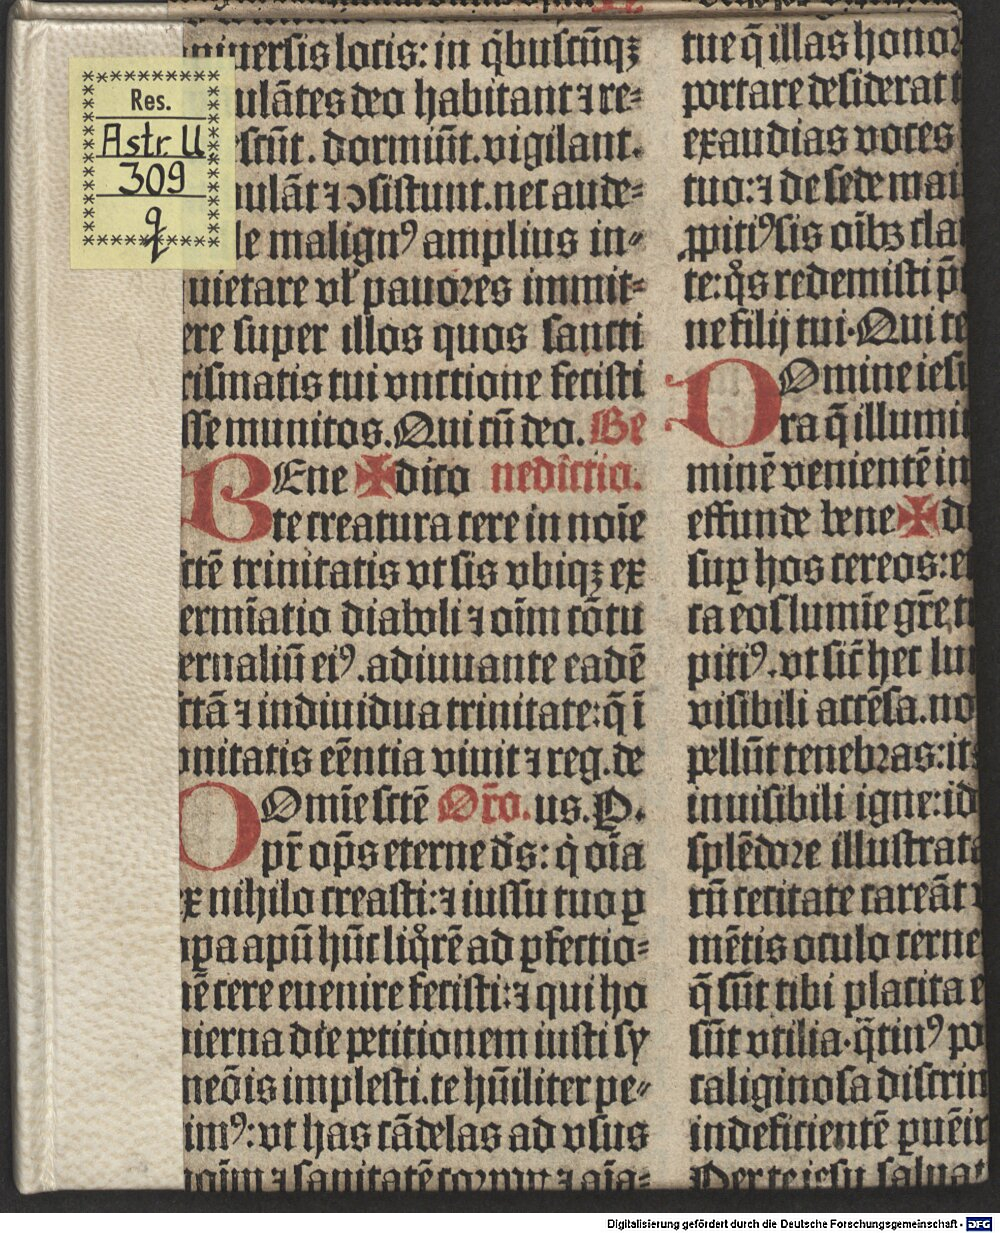 Res.
Astr. U
309
q
niuersis locis: in q̄buscūqꝫ
ulātes deo habitant ⁊ re⸗
escūt. dormiūt. vigilant.
ulāt ⁊ ↄsistunt. nec aude⸗
le malignꝰ amplius in⸗
uietare vl̓ pauores immit⸗
ere super illos quos sancti
risinatis tui vnctione fecisti
sse munitos. Qui cū deo. Be
BEne ✠ dico nedictio.
te creatura cere in noīe
ctē trinitatis vt sis vbiqꝫ ex
ermīatio diaboli ⁊ oīm cōtu
ernaliū eiꝰ. adiuuante eadē
ctā ⁊ indiuidua trinitate: q̄ ī
vnitatis eēntia viuit ⁊ reg. de
DOmīe sctē Or̄o. us. P.
pr̄ op̄s eterne d̄s: q̇ oīa
ex nihilo creasti: ⁊ iussu tuo ꝑ
opa apū hūc liq̊rē ad ꝑfectio⸗
nē cere euenire fecisti: ⁊ qui ho
dierna die petitionem iusti sy
meōis implesti. te hūiliter pe⸗
imꝰ: vt has cādelas ad vsus
oīm ⁊ sanitatē corpor̄ ⁊ aīa⸗
tue q̄ illas honor
portare desiderat
exaudias voces
tuo: ⁊ de sede mai
ꝓpitiꝰ sis oībꝫ cla
te: q̊s redemisti p̄
ne filij tui. Qui te
DOmine iesu
ra q̄ illumi
minē venientē in
effunde bene ✠ di
suꝑ hos cereos: et
ca eos lumīe gr̄e t
pitiꝰ. vt sic̄ hec lu
visibili accēsa. no
pellūt tenebras: it
inuisibili igne: id
splēdore illustrat
rū cecitate careāt
mētis oculo cerne
q̄ sūt tibi placita e
sūt vtilia. q̄tinꝰ po
caliginosa discrim
indeficientē ꝑuēi
Per te iesu saluat
Digitalisierung gefördert durch die Deutsche Forschungsgemeinschaft - DFG